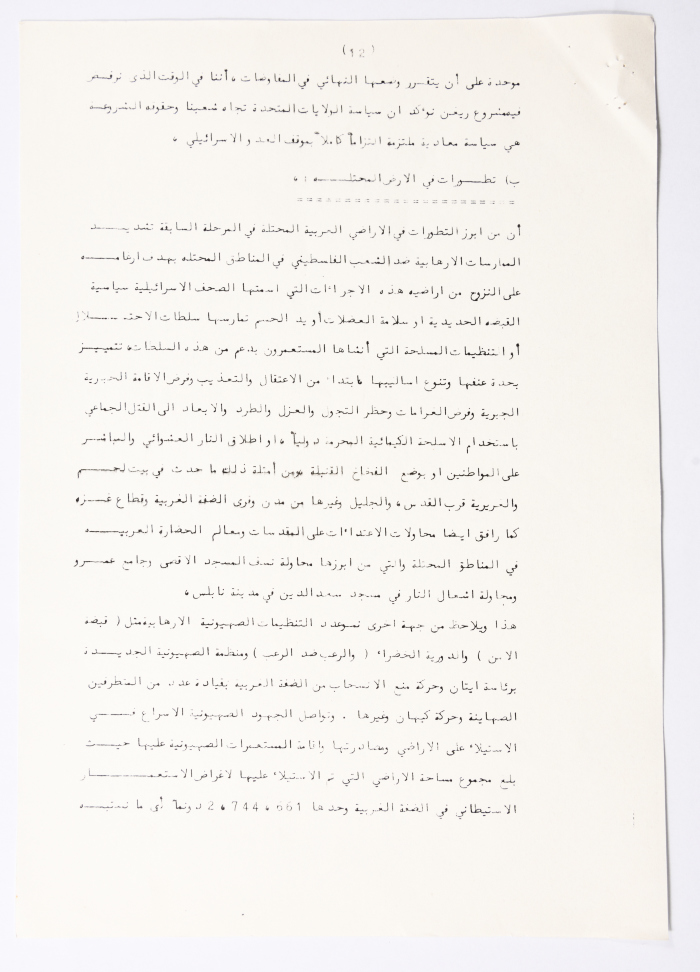 (12)
موحدة على أن يتقرر وضعها النهائي في المفاوضات ، أننا في الوقت الذى نرفض
فيه مشروع ريغن نؤكد ان سياسة الولايات المتحدة تجاه شعبنا وحقوقه المشروعه
هي سياسة معادية ملتزمة التزاماً كاملاً بموقف العدو الاسرائيلي ،
ب) تطـورات في الارض المحتلـــه : ،
======================
أن من ابرز التطورات في الاراضي العربية المحتلة في المرحلة السابقة تشديـــد
الممارسات الارهابية ضد الشعب الفلسطيني في المناطق المحتله بهدف ارغامـــه
على النزوح من اراضيه هذه الاجراءات التي اسمتها الصحف الاسرائيلية سياسية
القبضه الحديدية او سلامة العضلات أو يد الحسم تمارسها سلطات الاحتـــلال
أو التنظيمات المسلحة التي أنشاها المستعمرون بدعم من هذه السلطات ، تتمييـز
بحدة عنفها وتنوع اساليبها ، ابتداء من الاعتقال والتعذيب وفرض الاقامة الجبرية
الجبرية وفرض الغرامات وحظر التجول والعزل والطرد والابعاد الى القتل الجماعي
باستخدام الاسلحة الكيمائية المحرمه دولياً ، او اطلاق النار العشوائي والمباشـر
على المواطنين او بوضع الفخاخ القتيلة ، ومن أمثلة ذلك ما حدث في بيت لحـــم
والعيزيرية قرب القدس ، والجليل وغيرها من مدن وقرى الضفة الغربية وقطاع غــزه
كما رافق ايضا محاولات الاعتداءات على المقدسات ومعالم الحضارة العربيـــه
في المناطق المحتلة والتي من ابرزها محاولة نسف المسجد الاقصى وجامع عمـرو
ومحاولة اشعال النار في مسجد سعد الدين في مدينة نابلس ،
هذا ويلاحظ من جهة اخرى نمو عدد التنظيمات الصهيونية الارهابية مثل ( قبضة
الامن ) والدورية الخضراء ( والرعب ضد الرعب ) ومنظمة الصهيونية الجديـــدة
برئاسة ايتان وحركة منع الانسحاب من الضفة الغربية بقيادة عدد من المتطرفين
الصهاينة وحركة كيهان وغيرها . وتواصل الجهود الصهيونية الاسراع فــــي
الاستيلاء على الاراضي ومصادرتها واقامة المستعمرات الصهيونية عليها حيـــث
بلغ مجموع مساحة الاراضي التي تم الاستيلاء عليها لاغراض الاستعمـــــار
الاستيطاني في الضفة الغربية وحدها 2،744،661 دونماً أى ما نسبتـــه